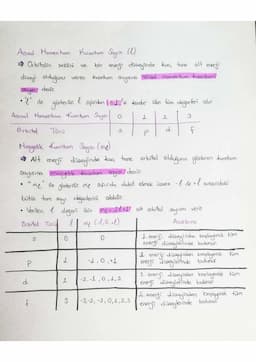 Açısal Momentum Kuantum Sayısı (ℓ)
Orbitalin şeklini ve bir enerji düzeyinde kaç tane alt enerji
düzeyi olduğunu veren kuantum sayısına açısal momentum kuantum
sayısı denir.
"ℓ" ile gösterilir
Açısal Momentum Kuantum Sayısı 0 1 2 3
Orbital Türü s p d f
Manyetik Kuantum Sayısı (mℓ)
Alt enerji düzeyinde kaç tane orbital olduğunu gösteren kuantum
sayısına manyetik kuantum sayısı denir.
"mℓ" ile gösterilir. mℓ -ℓ ile +ℓ arasındaki
bütün tam sayı değerlerini alabilir.
Verilen ℓ değeri için 2ℓ+1 sayısı verir.
Orbital Türü ℓ mℓ (-ℓ,0,+ℓ) Açıklama
s 0 0 1. enerji düzeyinden başlayarak tüm enerji düzeylerinde bulunur.
p 1 -1, 0, +1 2. enerji düzeyinden başlayarak tüm enerji düzeylerinde bulunur.
d 2 -2,-1,0,1,2 3. enerji düzeyinden başlayarak tüm enerji düzeylerinde bulunur.
f 3 -3,-2,-1,0,1,2,3 4. enerji düzeyinden başlayarak tüm enerji düzeylerinde bulunur.